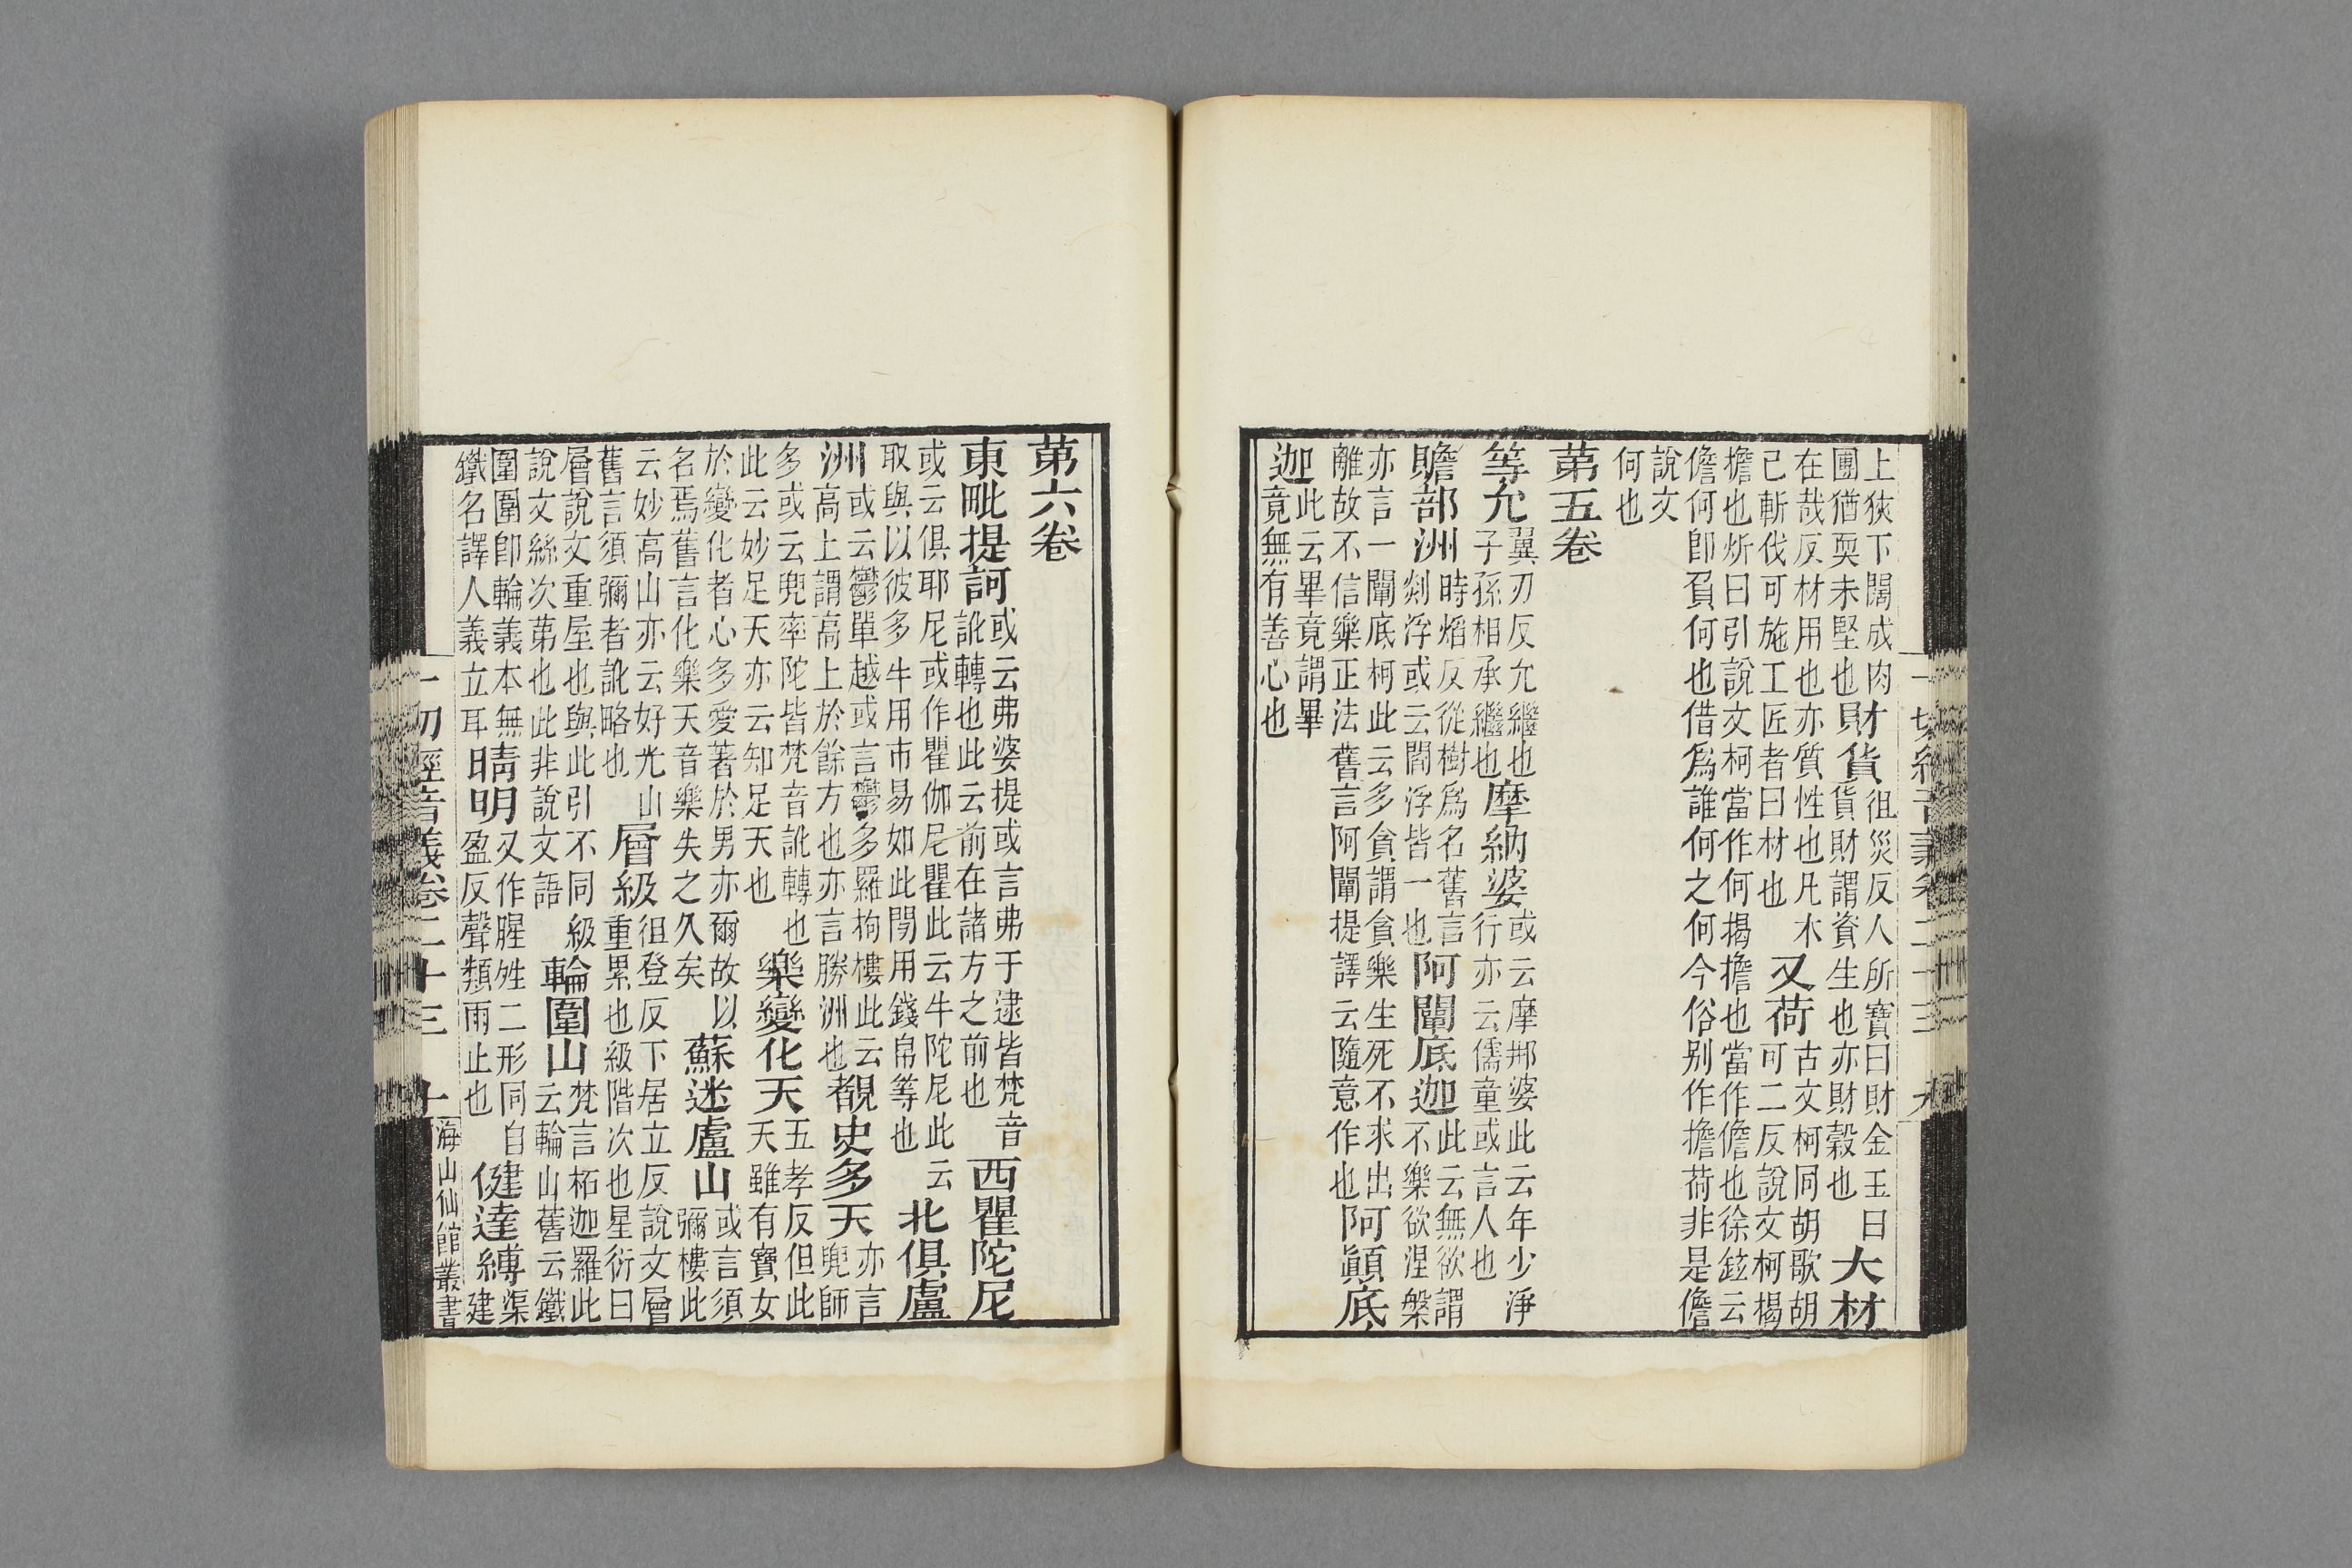 一切經音義卷二十三 九
上狹下闊成肉團猶耎未堅也財貨徂災反人所寶曰財金玉曰貨財謂資生也亦財穀也大材
在哉反材用也亦質性也凡木已斬伐可施工匠者曰材也又荷古文柯同胡歌胡可二反說文柯揭
擔也斫曰引說文柯當作何揭擔也當作儋也徐鉉云儋何卽負何也借爲誰何之何今俗别作擔荷非是儋
說文何也
第五卷
等允翼刃反允繼也子孫相承繼也摩納婆或云摩那婆此云年少淨行亦云儒童或言人也
贍部洲時熖反從樹爲名舊言剡浮或云閻浮皆一也阿闡底迦此云無欲謂不樂欲涅槃
亦言一闡底柯此云多貪謂貪樂生死不求出離故不信樂正法舊言阿闡提譯云隨意作也阿顚底
迦此云畢竟謂畢竟無有善心也
第六卷
東毗提訶或云弗婆提或言弗于逮皆梵音訛轉也此云前在諸方之前也西瞿陀尼
或云俱耶尼或作瞿伽尼瞿此云牛陀尼此云取與以彼多牛用市易如此閒用錢帛等也北俱盧
洲或云鬱單越或言鬱多羅拘樓此云高上謂高上於餘方也亦言勝洲也覩史多天亦言兜師
多或云兜率陀皆梵音訛轉也此云妙足天亦云知足天也樂變化天五孝反但此天雖有寶女
於變化者心多愛著於男亦爾故以名焉舊言化樂天音樂失之久矣蘇迷盧山或言須彌樓此
云妙高山亦云好光山舊言須彌者訛略也層級徂登反下居立反說文層重累也級階次也星衍曰
層說文重屋也與此引不同級說文絲次第也此非說文語輪圍山梵言柘迦羅此云輪山舊云鐵
圍圍卽輪義本無鐵名譯人義立耳晴明又作腥夝二形同自盈反聲類雨止也健達縛渠建
一切經音義卷二十三 十 海山仙館叢書